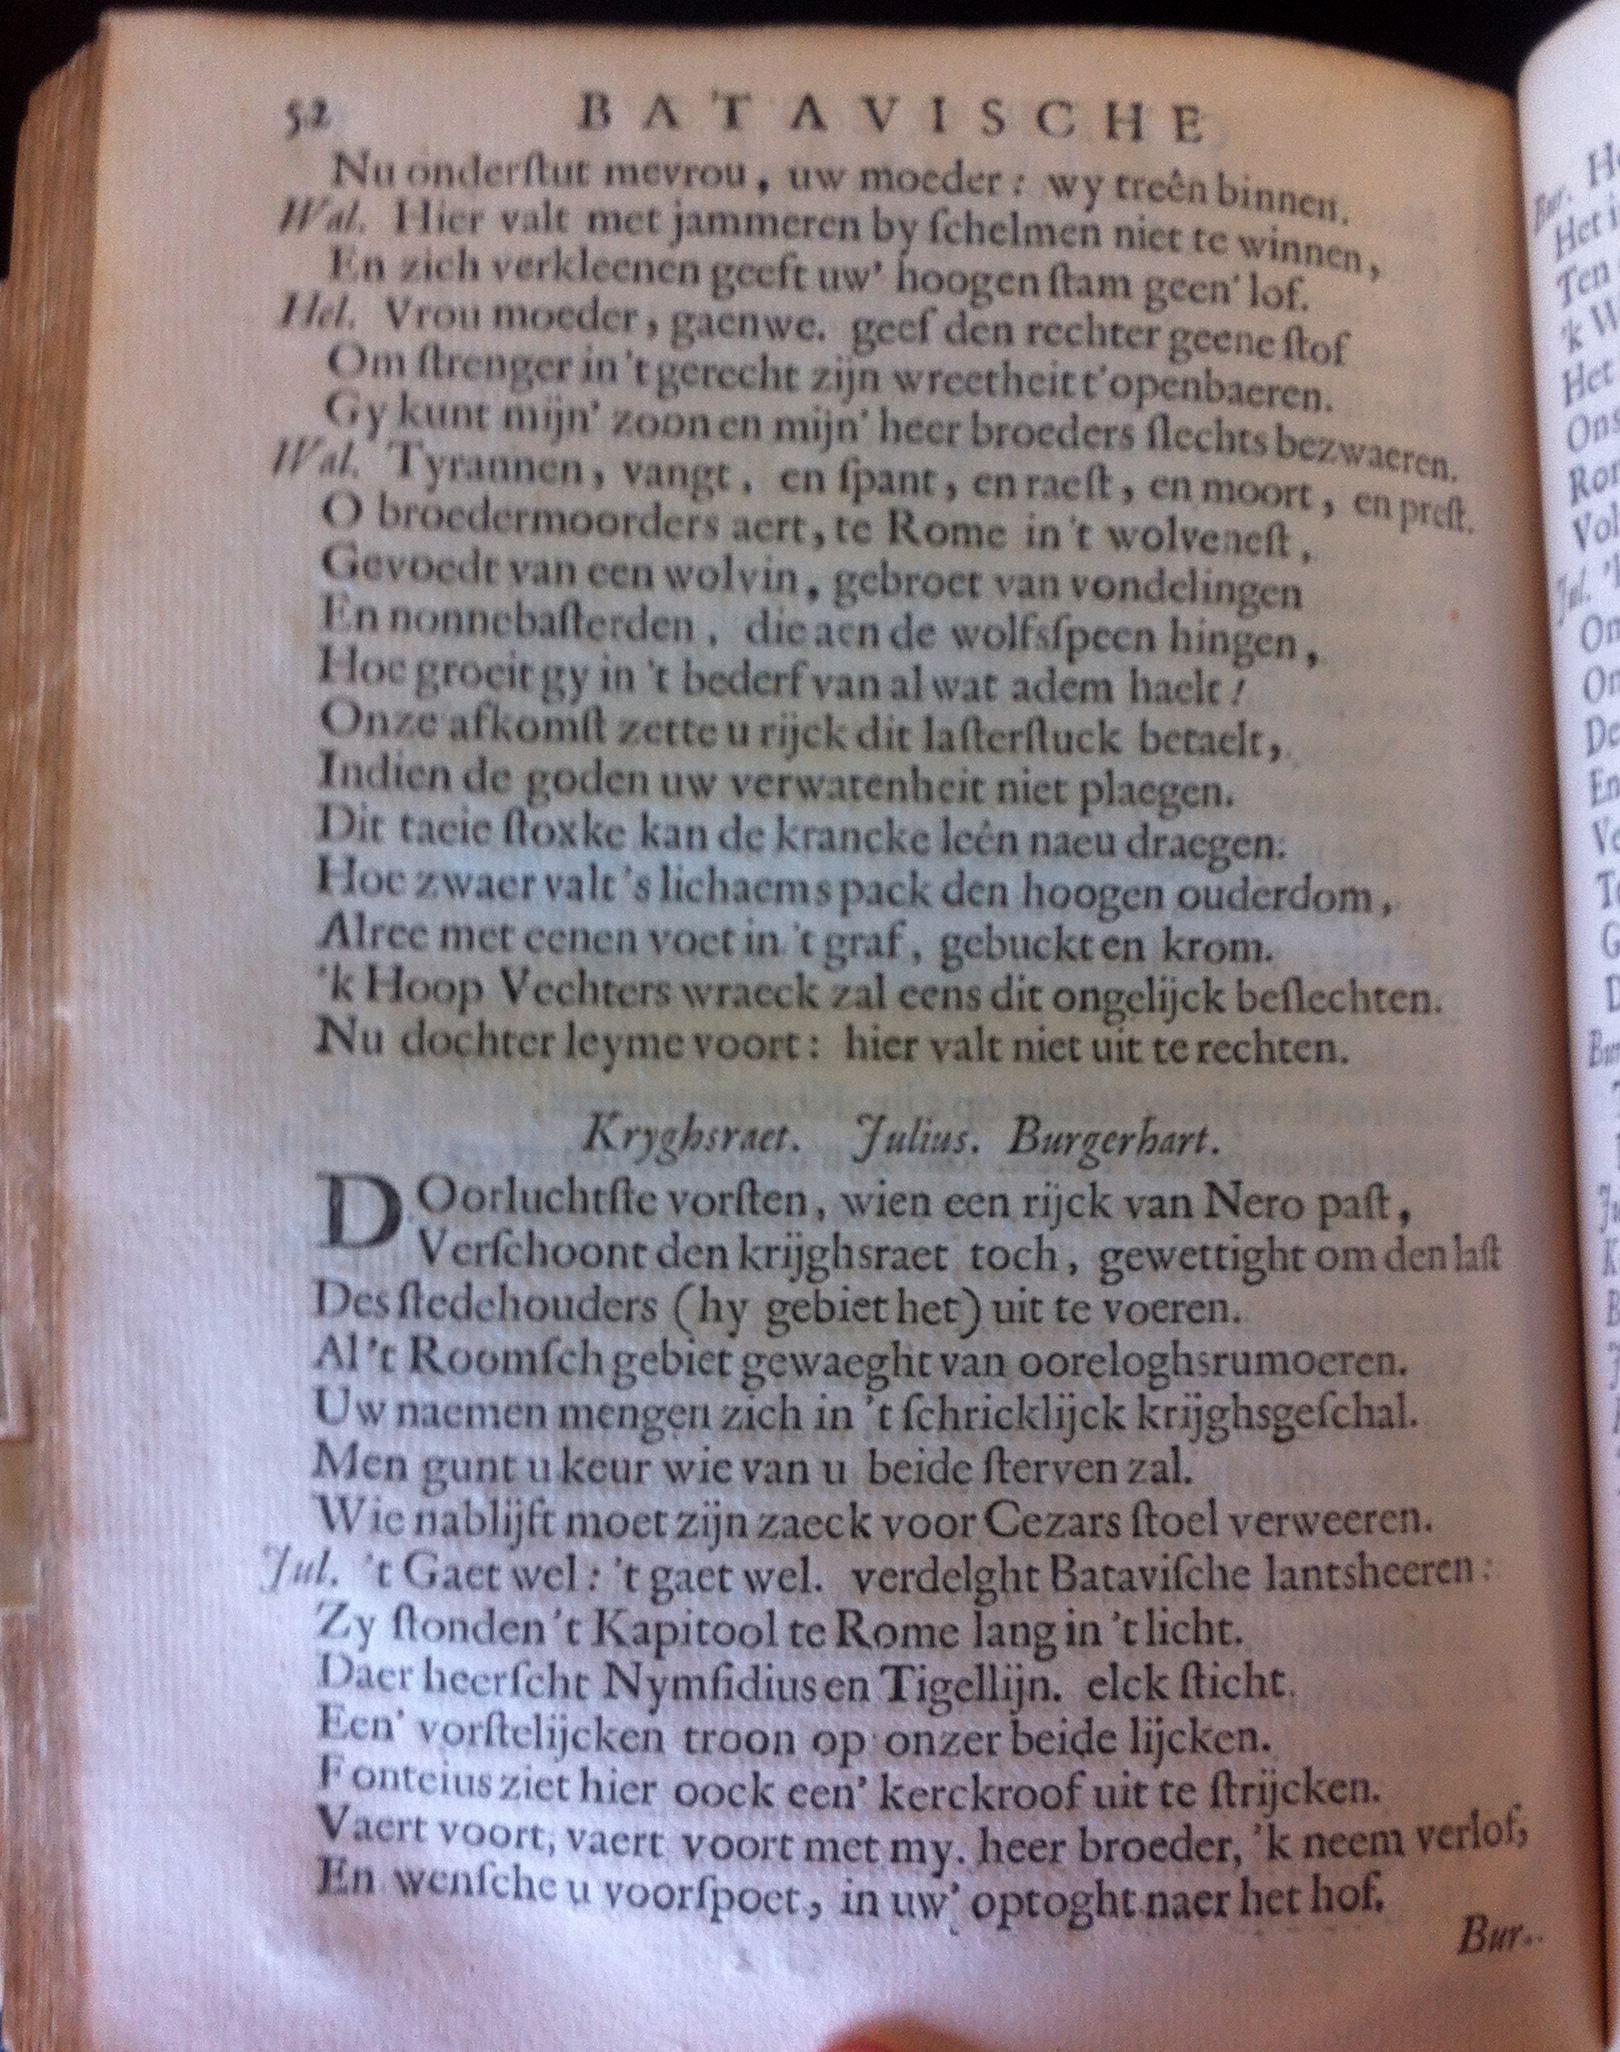 52 BATAVISCHE
Nu onderſtut mevrou, uw moeder: wy treên binnen.
Wal. Hier valt met jammeren by ſchelmen niet te winnen,
En zich verkleenen geeft uw' hoogen ſtam geen' lof.
Hel. Vrou moeder, gaenwe. geef den rechter geene ſtof
Om ſtrenger in 't gerecht zijn wreetheit t'openbaeren.
Gy kunt mijn' zoon en mijn' heer broeders ſlechts bezwaeren.
Wal. Tyrannen, vangt, en ſpant, en raeſt, en moort, en preſt.
O broedermoorders aert, te Rome in 't wolveneſt,
Gevoedt van een wolvin, gebroet van vondelingen
En nonnebaſterden, die aen de wolfsſpeen hingen,
Hoe groeit gy in 't bederf van al wat adem haelt!
Onze afkomſt zette u rijck dit laſterſtuck betaelt,
Indien de goden uw verwatenheit niet plaegen.
Dit taeie ſtoxke kan de krancke leên naeu draegen:
Hoe zwaer valt 's lichaems pack den hoogen ouderdom,
Alree met eenen voet in 't graf, gebuckt en krom.
'k Hoop Vechters wraeck zal eens dit ongelijck beſlechten.
Nu dochter leyme voort: hier valt niet uit te rechten.
Kryghsraet. Julius. Burgerhart.
DOorluchtſte vorſten, wien een rijck van Nero paſt,
Verſchoont den krijghsraet toch, gewettight om den laſt
Des ſtedehouders (hy gebiet het) uit te voeren.
Al 't Roomſch gebiet gewaeght van ooreloghsrumoeren.
Uw naemen mengen zich in 't ſchricklijck krijghsgeſchal.
Men gunt u keur wie van u beide ſterven zal.
Wie nablijft moet zijn zaeck voor Cezars ſtoel verweeren.
Jul. 't Gaet wel: 't gaet wel. verdelght Bataviſche lantsheeren:
Zy ſtonden 't Kapitool te Rome lang in 't licht.
Daer heerſcht Nymfidius en Tigellijn. elck ſticht
Een' vorſtelijcken troon op onzer beide lijcken.
Fonteius ziet hier oock een' kerckroof uit te ſtrijcken.
Vaert voort, vaert voort met my. heer broeder, 'k neem verlof,
En wenſche u voorſpoet, in uw' optoght naer het hof.
Bur.